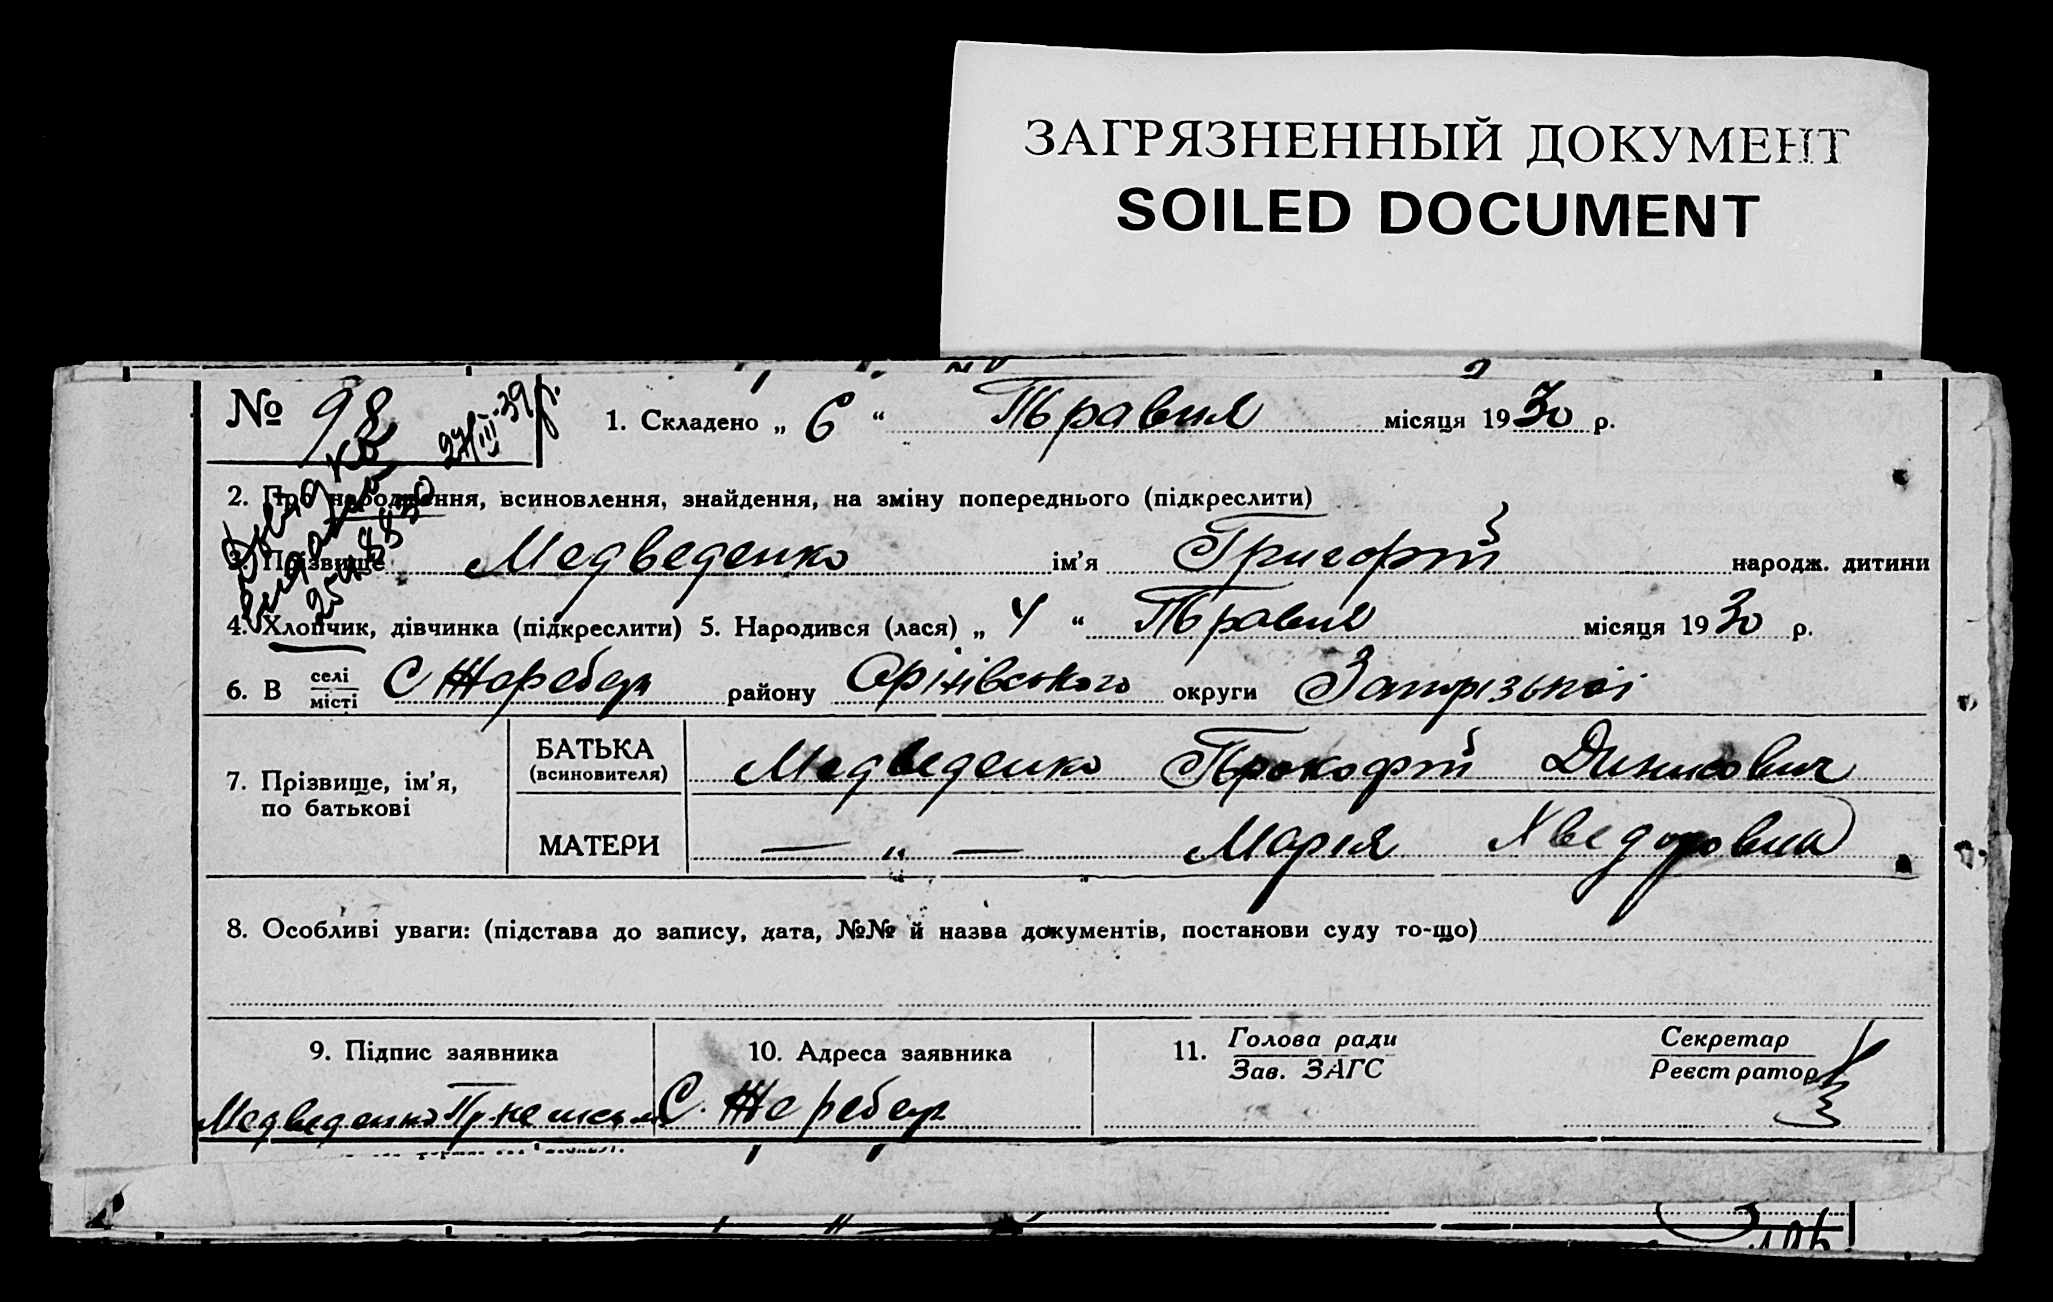 ЗАГРЯЗНЕННЫЙ ДОКУМЕНТ
SOILED DOCUMENT
№ 98 1. Складено „ 6 “ Травня місяця 1930 р.
27/III-39 р.
2. Про народження, всиновлення, знайдення, на зміну попереднього (підкреслити)
3. Прізвище Медведенко ім’я Григорій народж. дитини
4. Хлопчик, дівчинка (підкреслити) 5. Народився (лася) „ 4 “ Травня місяця 1930 р.
6. В селі місті С Жеребець району Оріхівського округи Запорізької
7. Прізвище, ім’я, по батькові
БАТЬКА (всиновителя) Медведенко Прокофій Динисович
МАТЕРИ — „ — Марія Хведоровна
8. Особливі уваги: (підстава до запису, дата, №№ й назва документів, постанови суду то-що)
9. Підпис заявника 10. Адреса заявника 11. Голова ради Зав. ЗАГС Секретар Реєстратор
Медведенко С. Жеребець